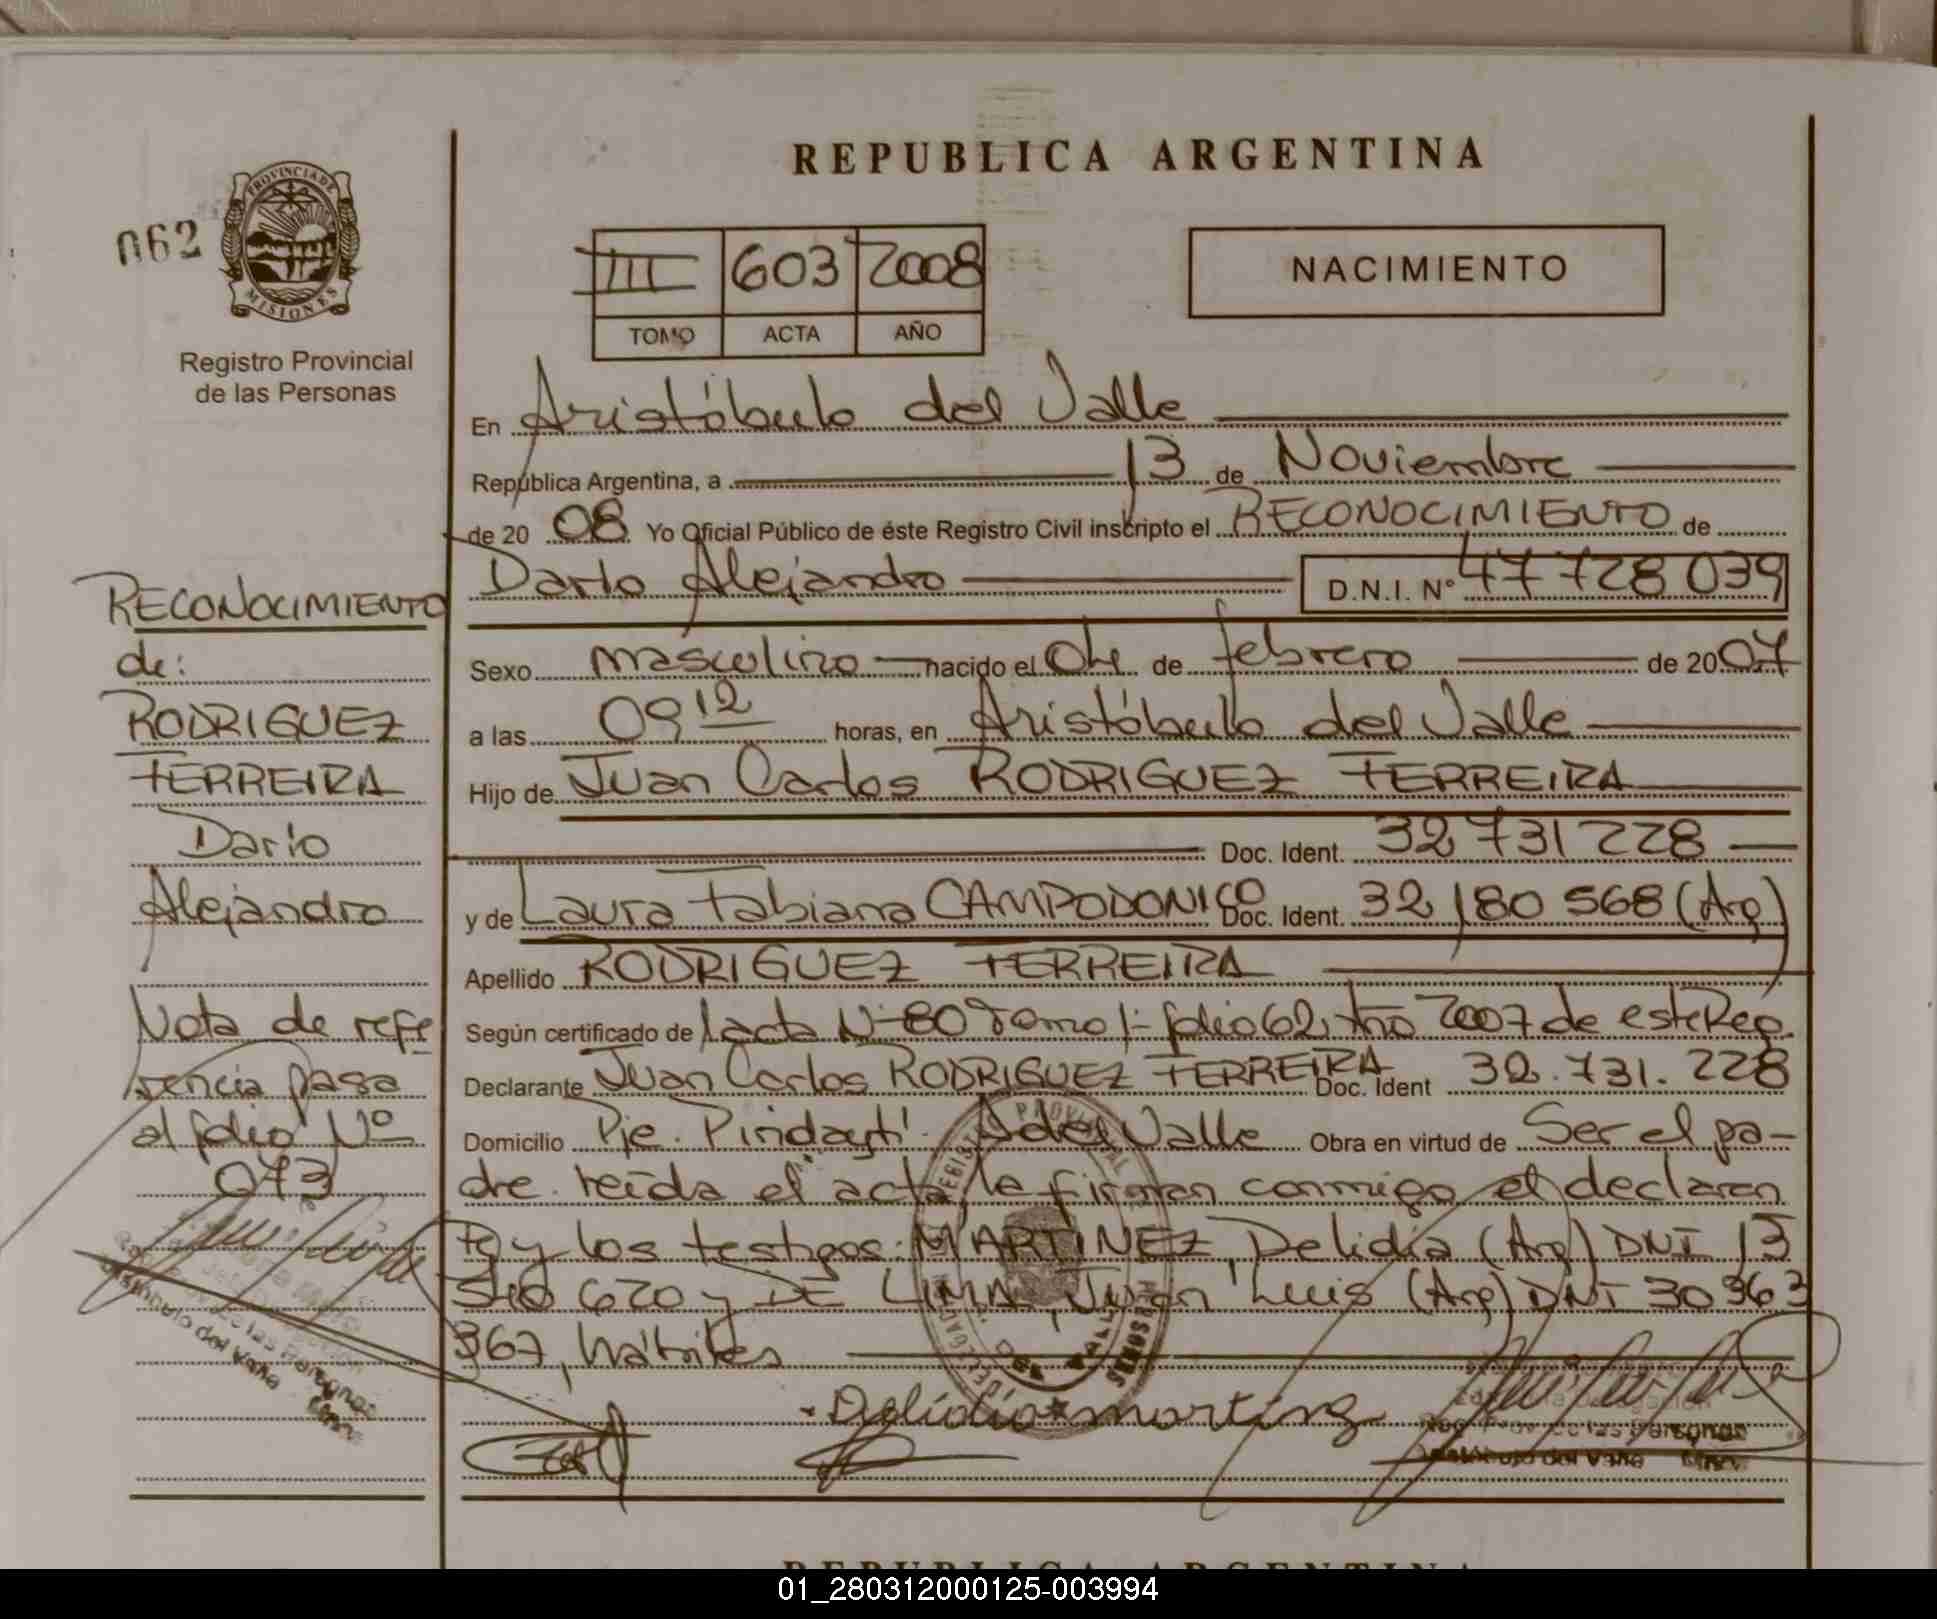 REPUBLICA ARGENTINA
062
PROVINCIA DE
MISIONES
Registro Provincial
de las Personas
III 603 2008
TOMO ACTA AÑO
NACIMIENTO
En Aristóbulo del Valle
República Argentina, a 13 de Noviembre
de 20 08 Yo Oficial Público de éste Registro Civil inscripto el RECONOCIMIENTO de
Darío Alejandro D.N.I. Nº 47 728 039
Sexo masculino nacido el 04 de febrero de 20 07
a las 09 12 horas, en Aristóbulo del Valle
Hijo de Juan Carlos RODRIGUEZ FERREIRA
Doc. Ident. 32 731 228
y de Laura Fabiana CAMPODONICO Doc. Ident. 32 180 568 (Arg)
Apellido RODRIGUEZ FERREIRA
Según certificado de acta Nº 80 Tomo 1º folio 62, Año 2007 de este Reg.
Declarante Juan Carlos RODRIGUEZ FERREIRA Doc. Ident 32.731.228
Domicilio Pje. Pindaytí. A del Valle Obra en virtud de Ser el pa-
dre. leída el acta, la firman conmigo el declaran
te y los testigos: MARTINEZ, Delidia (Arg) DNI 13
620 y DE LIMA, Juan Luis (Arg) DNI 30 363
367, hábiles
Delidia martinez
RECONOCIMIENTO
de:
RODRIGUEZ
FERREIRA
Darío
Alejandro
Nota de refe
rencia pasa
al folio Nº
073
de las Personas
Aristóbulo del Valle Mnes.
de las Personas
Aristóbulo del Valle Mnes.
REPUBLICA ARGENTINA
01_280312000125-003994